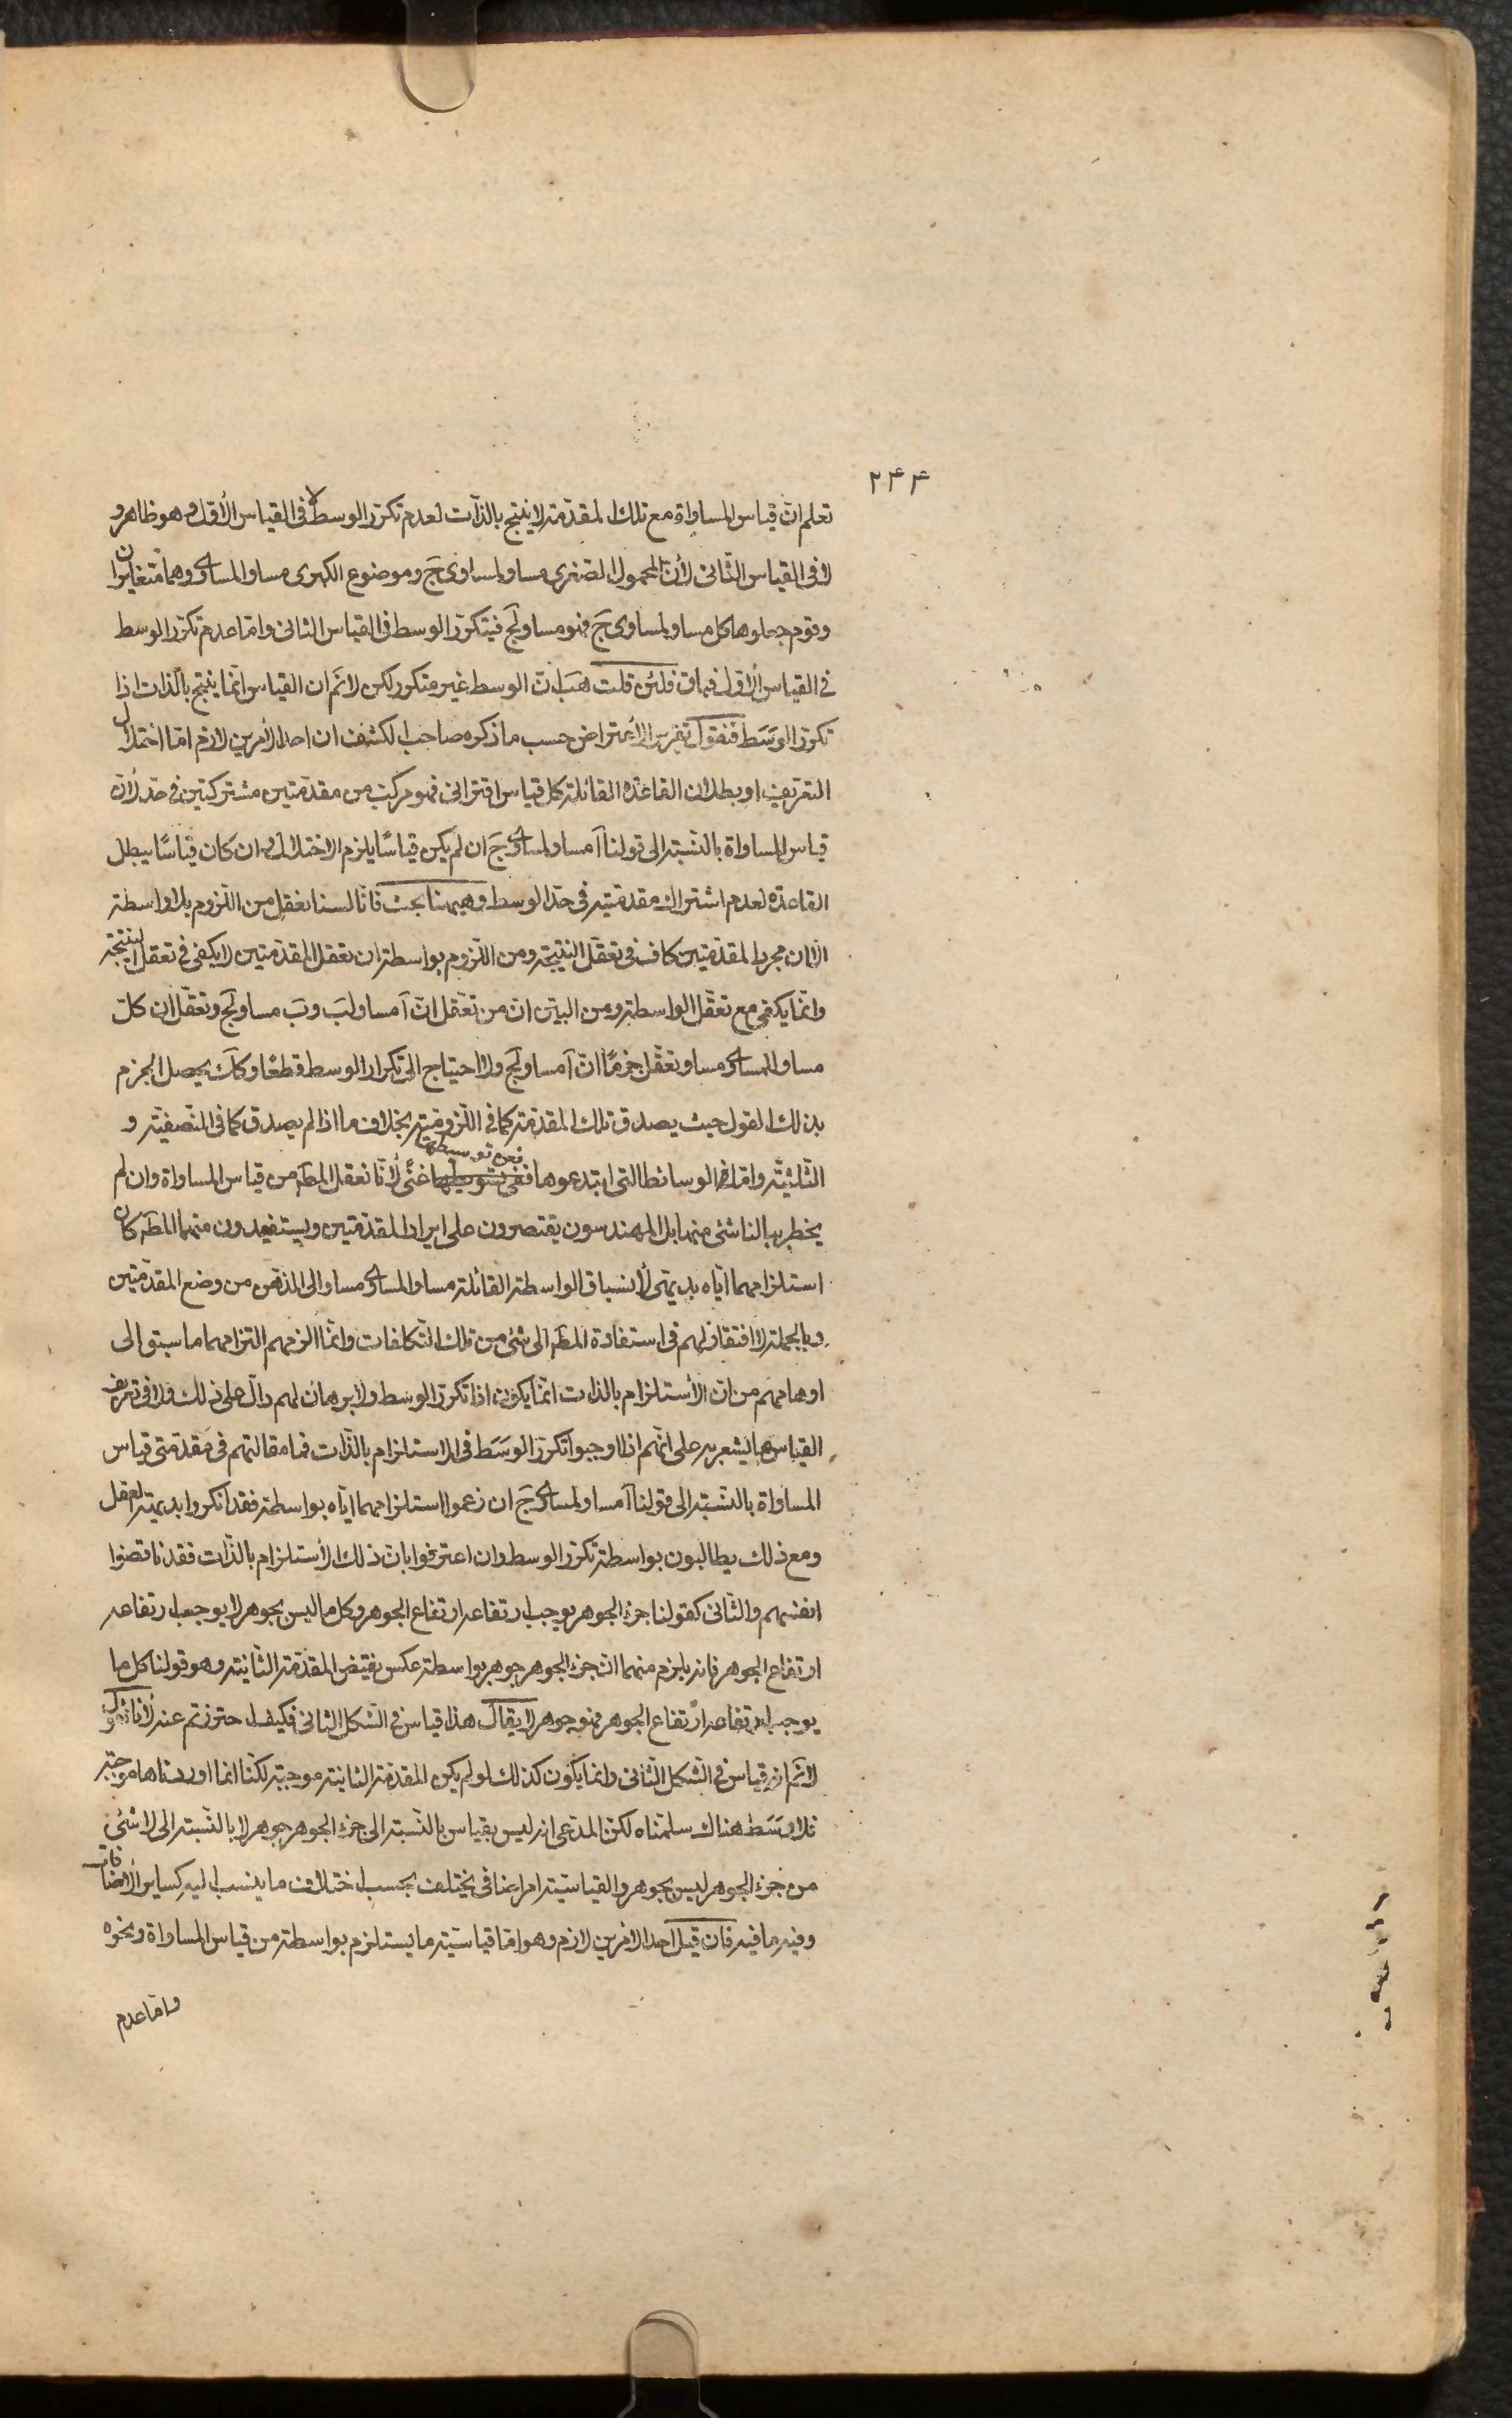 ٢٤٤
تعلم انّ قياس المساواة مع تلك المقدّمة لا ينتج بالذّات لعدم تكرّر الوسط لا فى القياس الأوّل وهو ظاهر و
لا فى القياس الثّانى لأنّ المحمول الصّغرى مساو لمساوى جَ وموضوع الكبرى مساو المساوى وهما متغايران
وقوم جعلوها كل مساو لمساوى جَ فهو مساو لجَ فيتكرّر الوسط فى القياس الثانى وامّا عدم تكرّر الوسط
فى القياس الأوّل فباق فلئن قلت هَبْ انّ الوسط غير متكرر لكن لا نَم ان القياس انّما ينتج بالّذات اذا
تكرّر الوَسَط فنقول تقرير الأعتراض حسب ما ذكره صاحب الكشف ان احد الأمرين لازم امّا اختلال
التعريف او بطلان القاعدة القائلة كل قياس اقترانى فهو مركب من مقدّمتين مشتركتين فى حدّ لأنّ
قياس المساواة بالنّسبة الى قولنا آ مساو لمساوى جَ ان لم يكن قياسًا يلزم الاختلال وان كان قياسًا يبطل
القاعدة لعدم اشتراك مقدمتيه فى حدّ الوسط وهيهنا بحث فانّا لسنا نعقل من اللّزوم بلا واسطة
الّا ان مجرد المقدّمتين كاف فى تعقّل النتيجة ومن اللّزوم بواسطة ان تعقل المقدّمتين لا يكفى فى تعقل النتيجة
وانّما يكفى مع تعقّل الواسطة ومن البيّن انّ من تعّقل انّ آ مساو لبَ وبَ مساو لجَ وتعقّل ان كلّ
مساو للمساوى مساو تعقّل جزمًا انّ آ مساو لجَ ولا احتياج الى تكرار الوسط قطعًا وكَك يحصل الجزم
بذلك القول حيث يصدق تلك المقدّمة كما فى اللّزوميّة بخلاف ما اذا لم يصدق كما فى النّصفيّة و
الثّلثيّة وامّا فى الوسائط التى ابتدعوها ففى بتوسيطها فعن توسيطها غنًى لأنّا نعقل المطَ من قياس المساواة وان لم
يخطر ببالنا شئ منها بل المهندسون يقتصرون على ايراد المقدّمتين ويستفيدون منهما المطَ كان
استلزامهما ايّاه بديهى لأنسباق الواسطة القائلة مساو المساوى مساو الى الذّهن من وضع المقدّمتين
وبالجملة لا افتقار لهم فى استفادة المطَ الى شئ من تلك التّكلفات وانّما الزمهم التزامها ما سبق الى
اوهامهم من انّ الأستلزام بالذات انّما يكون اذا تكرّر الوسط ولا برهان لهم دالّ على ذلك ولا فى تعريف
القياس ما يشعر به على انّهم اذا اوجبوا تكرّر الوَسَط فى الاستلزام بالذّات فما مقالتهم فى مقدّمتى قياس
المساواة بالنّسبة الى قولنا آ مساو لمساوى جَ ان زعموا استلزامهما ايّاه بواسطة فقد انكروا بديهة العقل
ومع ذلك يطالبون بواسطة تكرّر الوسط وان اعترفوا بانّ ذلك الأستلزام بالذّات فقد ناقضوا
انفسهم والثّانى كقولنا جزء الجوهر يوجب ارتفاعه ارتفاع الجوهر وكل ما ليس بجوهر لا يوجب ارتفاعه
ارتفاع الجوهر فانه يلزم منهما انّ جزء الجوهر جوهر بواسطة عكس نقيض المقدّمة الثّانية وهو قولنا كل ما
يوجب ارتفاعه ارتفاع الجوهر فهو جوهر لا يقال هذا قياس فى الشّكل الثانى فكيف احترزتم عنه لأنا نقول
لا نَم انه قياس فى الشّكل الثّانى وانما يكون كذلك لو لم يكن المقدّمة الثانية موجبة لكنّا انما اوردناها موجبة
فلا وَسَط هناك سلّمناه لكن المدّعى انه ليس بقياس بالنّسبة الى جزء الجوهر جوهر لا بالنّسبة الى لا شئ
من جزء الجوهر ليس بجوهر والقياسيّة امر اضافى يختلف بحسب اختلاف ما ينسب اليه كساير الأضافات
وفيه ما فيه فان قيل احد الامرين لازم وهو امّا قياسيّة ما يستلزم بواسطة من قياس المساواة ونحوه
وامّا عدم